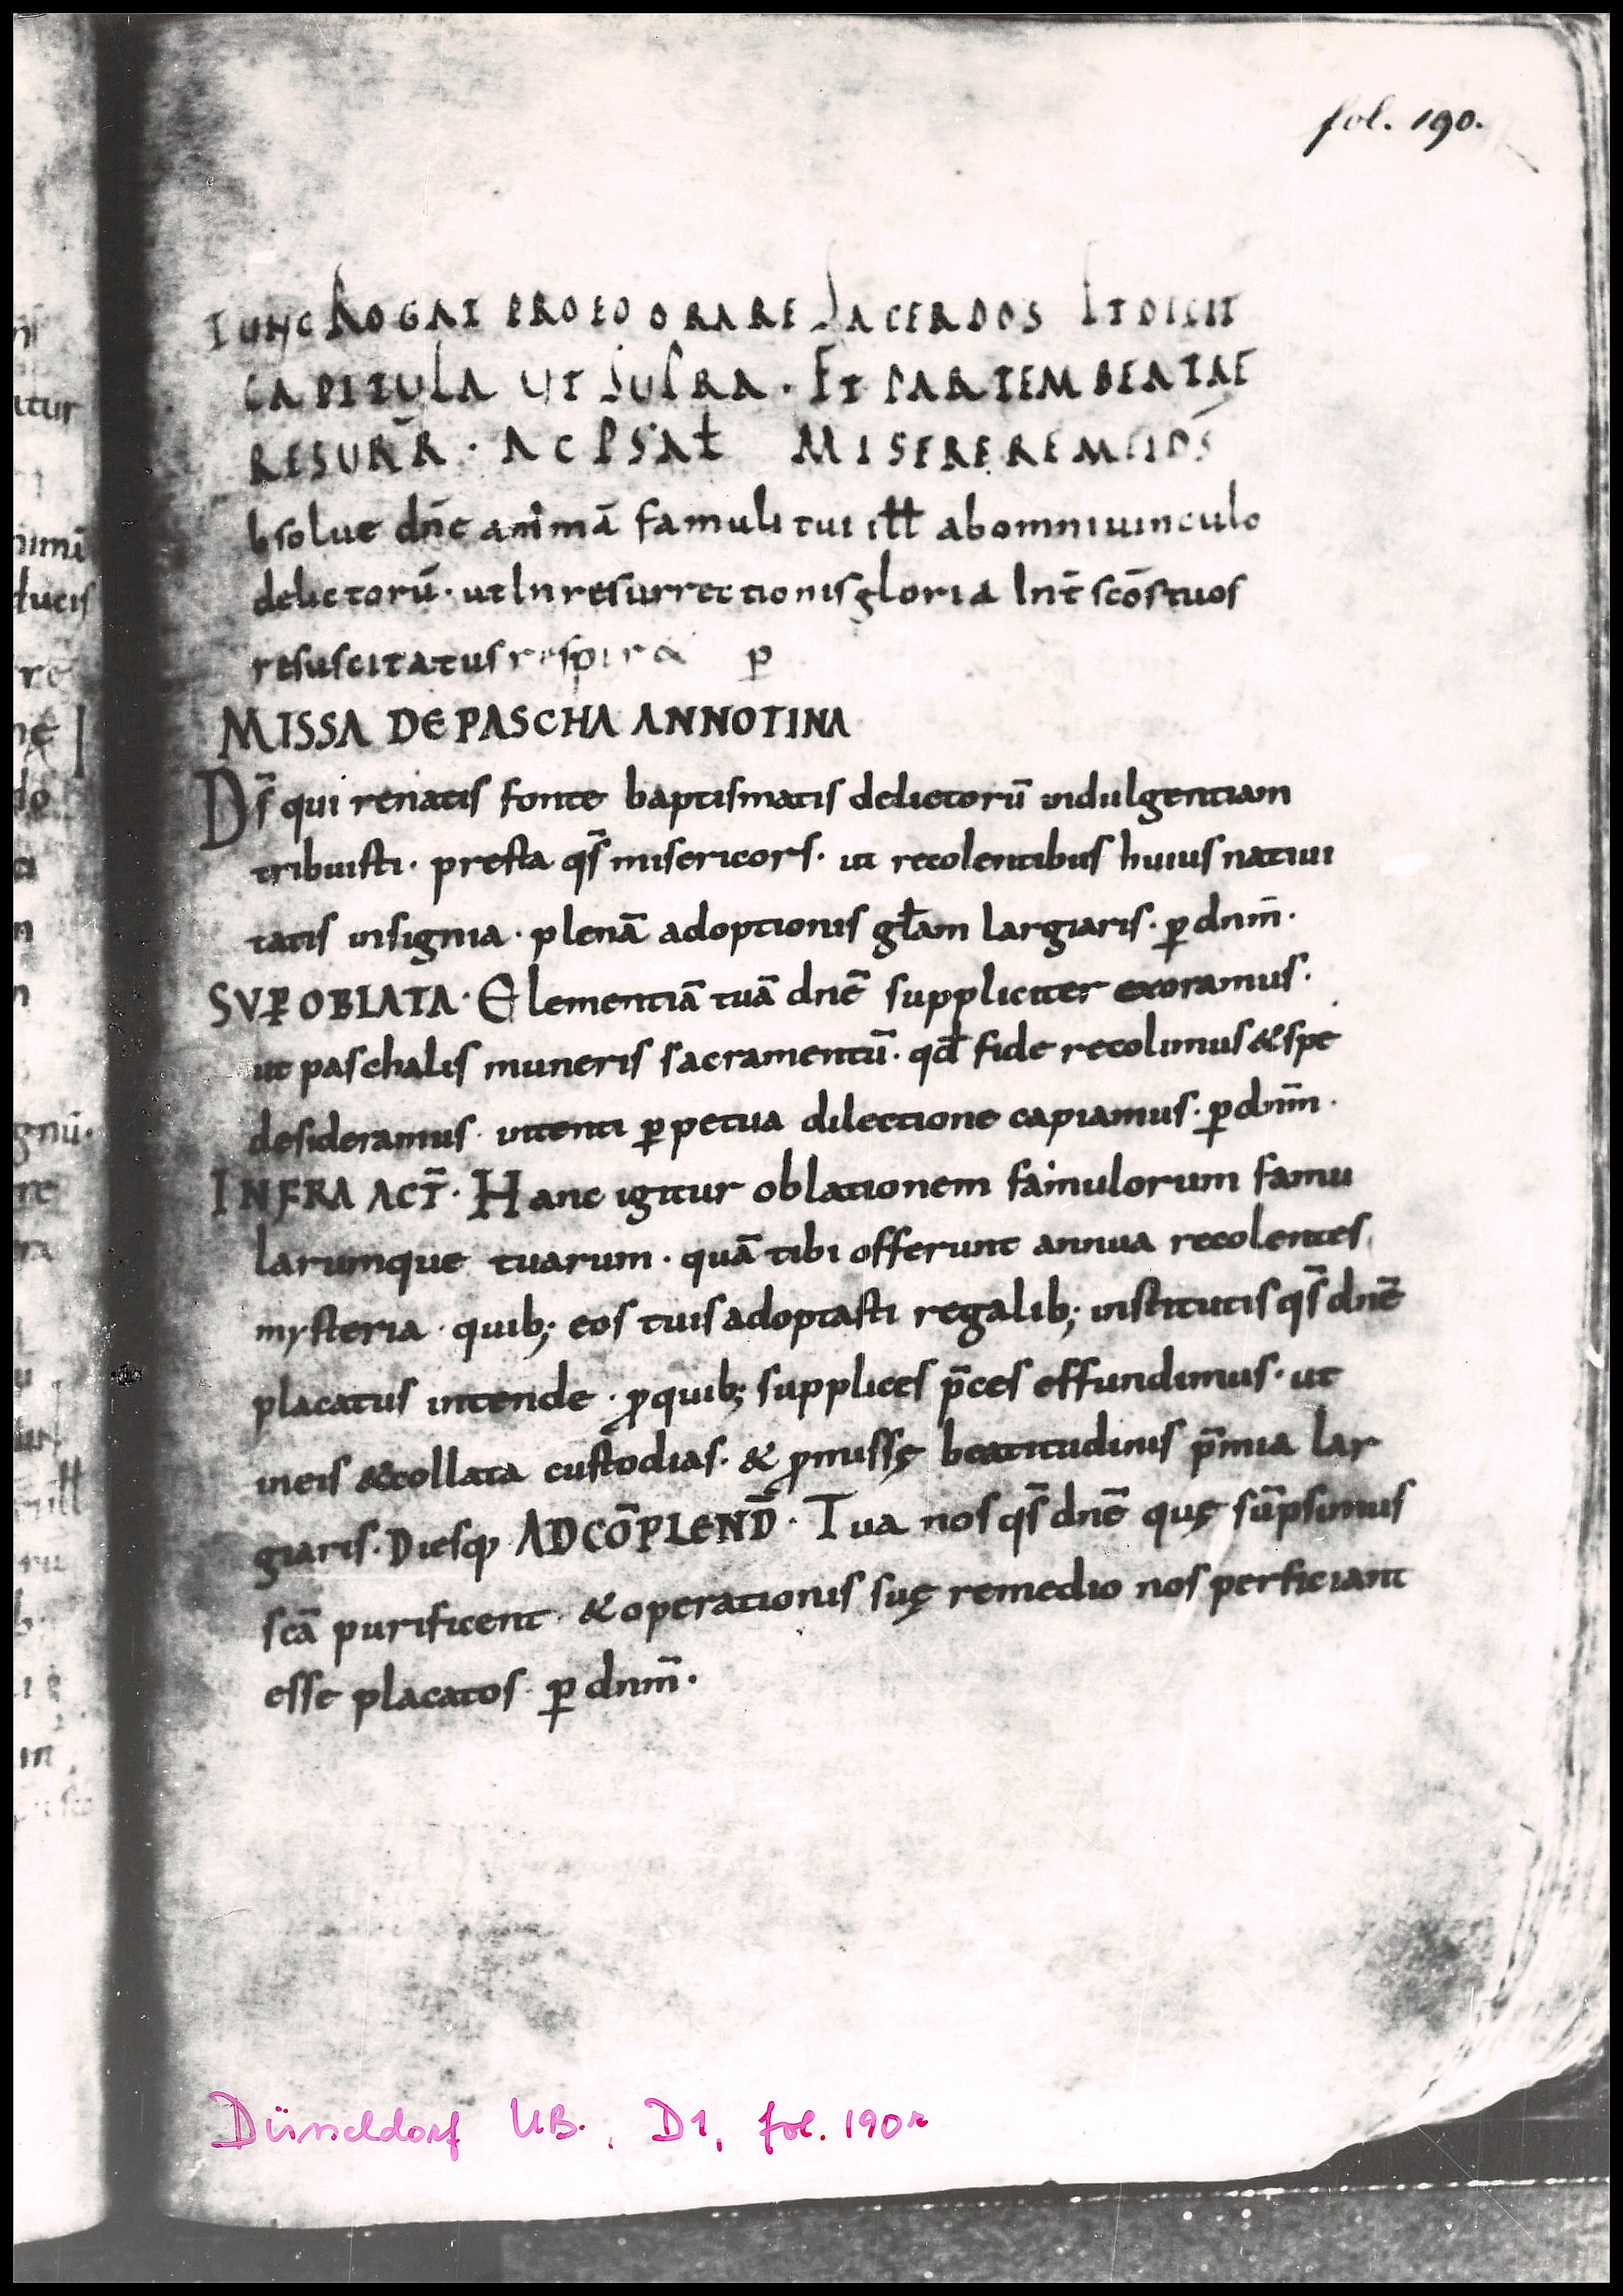 fol. 190.
TUNC ROGAT PROEO ORARE SACERDOS ET DICIT
CAPITULA UT SUPRA · ET PARTEM BEATAE
RESURR̄ · AC PSAł MISERERE MEI DS̄
bsolue dn̄e animā famuli tui iłł abomniuinculo
delictorū · ut In resurrectionis gloria Int̄ scōs tuos
resuscitatus respir& p̲
MISSA DE PASCHA ANNOTINA
Ds̄ qui renatis fonte baptismatis delictorū indulgentiam
tribuisti · presta qs̄ misericors · ut recolentibus huius natiui
tatis insignia · plenā adoptionis głam largiaris · p̲ dnm̄ ·
SVP̲ OBLATA · Clementiā tuā dnē suppliciter exoramus ·
ut paschalis muneris sacramentū · qđ fide recolimus & spe
desideramus · intenti p̲petua dilectione capiamus · p̲ dnm̄ ·
INFRA ACT̄ · Hanc igitur oblationem famulorum famu
larumque tuarum · quā tibi offerunt annua recolentes
mysteria · quib; eos tuis adoptasti regalib; institutis qs̄ dnē
placatus intende · ꝓquib; supplices p̄ces effundimus · ut
ineis & collata custodias · & ꝓmissę beatitudinis p̄mia lar
giaris · Diesq; ADCŌPLEND̄ · Tua nos qs̄ dnē quę sūpsimus
scā purificent · & operationis suę remedio nos perficiant
esse placatos · p̲ dnm̄ ·
Düsseldorf UB., D1, fol. 190r